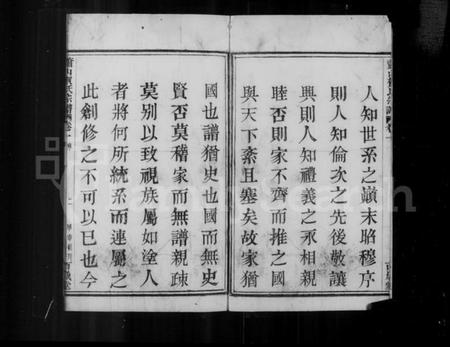 人知世系之巔末昭穆序
則人知倫次之先後敬讓
興則人知禮義之承相親
睦否則家不齊而推之國
與天下紊且塞矣故家猶
國也譜猶史也國而無史
賢否莫稽家而無譜親疎
莫別以致視族屬如塗人
者將何所統系而連屬之
此創修之不可以已也今